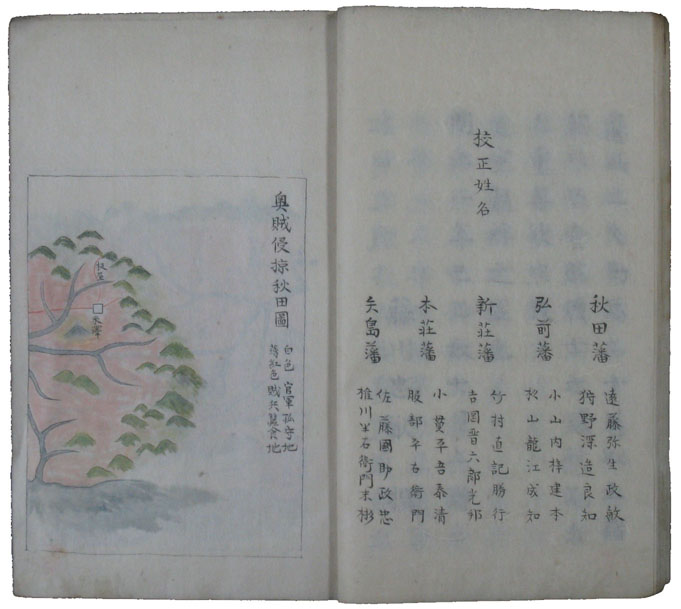 校正姓名
秋田藩
遠藤弥生政敏
狩野深造良知
弘前藩
小山内梓建本
秋山龍江成知
新荘藩
竹村直記勝行
吉岡晋六郎光邦
本荘藩
小貫平吾泰清
服部平右衛門
矢島藩
佐藤國助政忠
椎川半右衛門末彬
奥賊侵掠秋田圖
白色 官軍孤守地
薄紅色 賊兵蠶食地